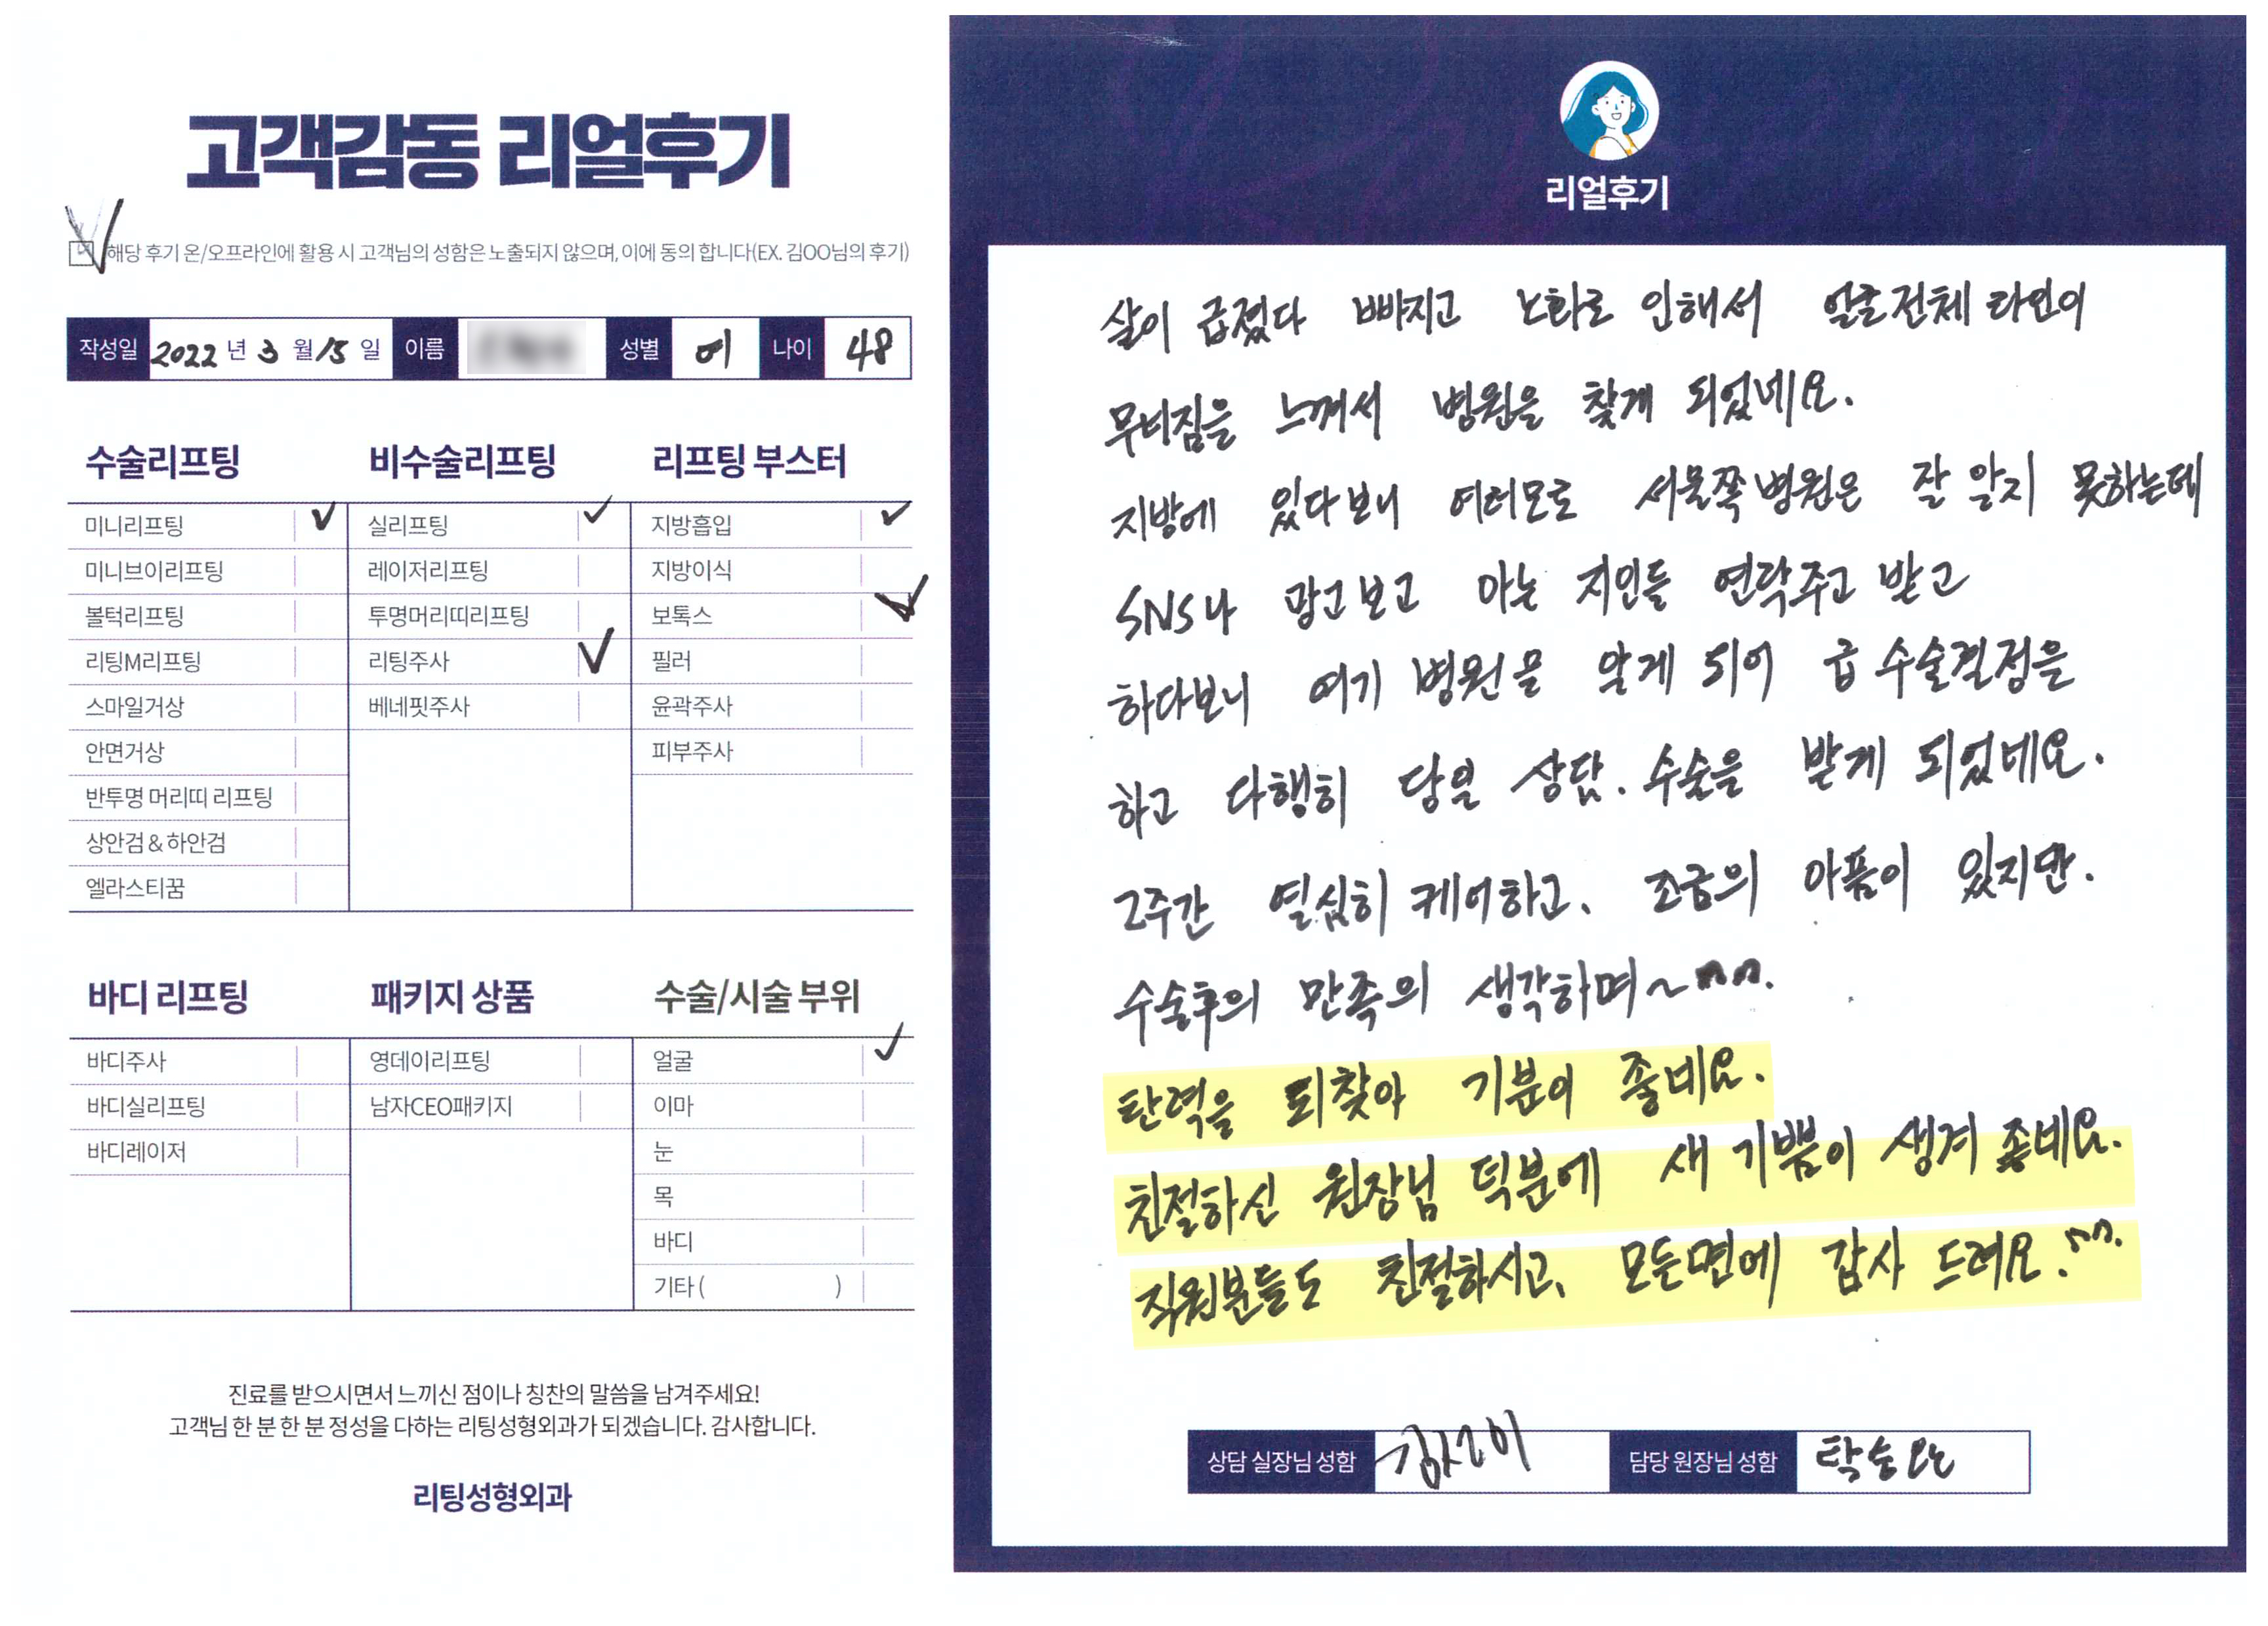 고객감동 리얼후기
해당 후기 온/오프라인에 활용 시 고객님의 성함은 노출되지 않으며, 이에 동의 합니다(EX. 김OO님의 후기)
작성일 2022 년 3 월 15 일 이름 성별 여 나이 48
수술리프팅 비수술리프팅 리프팅 부스터
미니리프팅 실리프팅 지방흡입
미니브이리프팅 레이저리프팅 지방이식
볼턱리프팅 투명머리띠리프팅 보톡스
리팅M리프팅 리팅주사 필러
스마일거상 베네핏주사 윤곽주사
안면거상 피부주사
반투명 머리띠 리프팅
상안검 & 하안검
엘라스티꿈
바디 리프팅 패키지 상품 수술/시술 부위
바디주사 영데이리프팅 얼굴
바디실리프팅 남자CEO패키지 이마
바디레이저 눈
목
바디
기타 ( )
진료를 받으시면서 느끼신 점이나 칭찬의 말씀을 남겨주세요!
고객님 한 분 한 분 정성을 다하는 리팅성형외과가 되겠습니다. 감사합니다.
리팅성형외과
리얼후기
살이 급쪘다 빠지고 노화로 인해서 얼굴전체 라인이
무너짐을 느껴서 병원을 찾게 되었네요.
지방에 있다보니 여러모로 서울쪽병원은 잘 알지 못하는데
SNS나 광고보고 아는 지인들 연락주고 받고
하다보니 여기 병원을 알게 되어 급 수술결정을
하고 다행히 당일 상담. 수술을 받게 되었네요.
2주간 열심히 케어하고. 조금의 아픔이 있지만.
수술후의 만족의 생각하며~
탄력을 되찾아 기분이 좋네요.
친절하신 원장님 덕분에 새 기쁨이 생겨 좋네요.
직원분들도 친절하시고, 모든면에 감사 드려요.
상담 실장님 성함 담당 원장님 성함